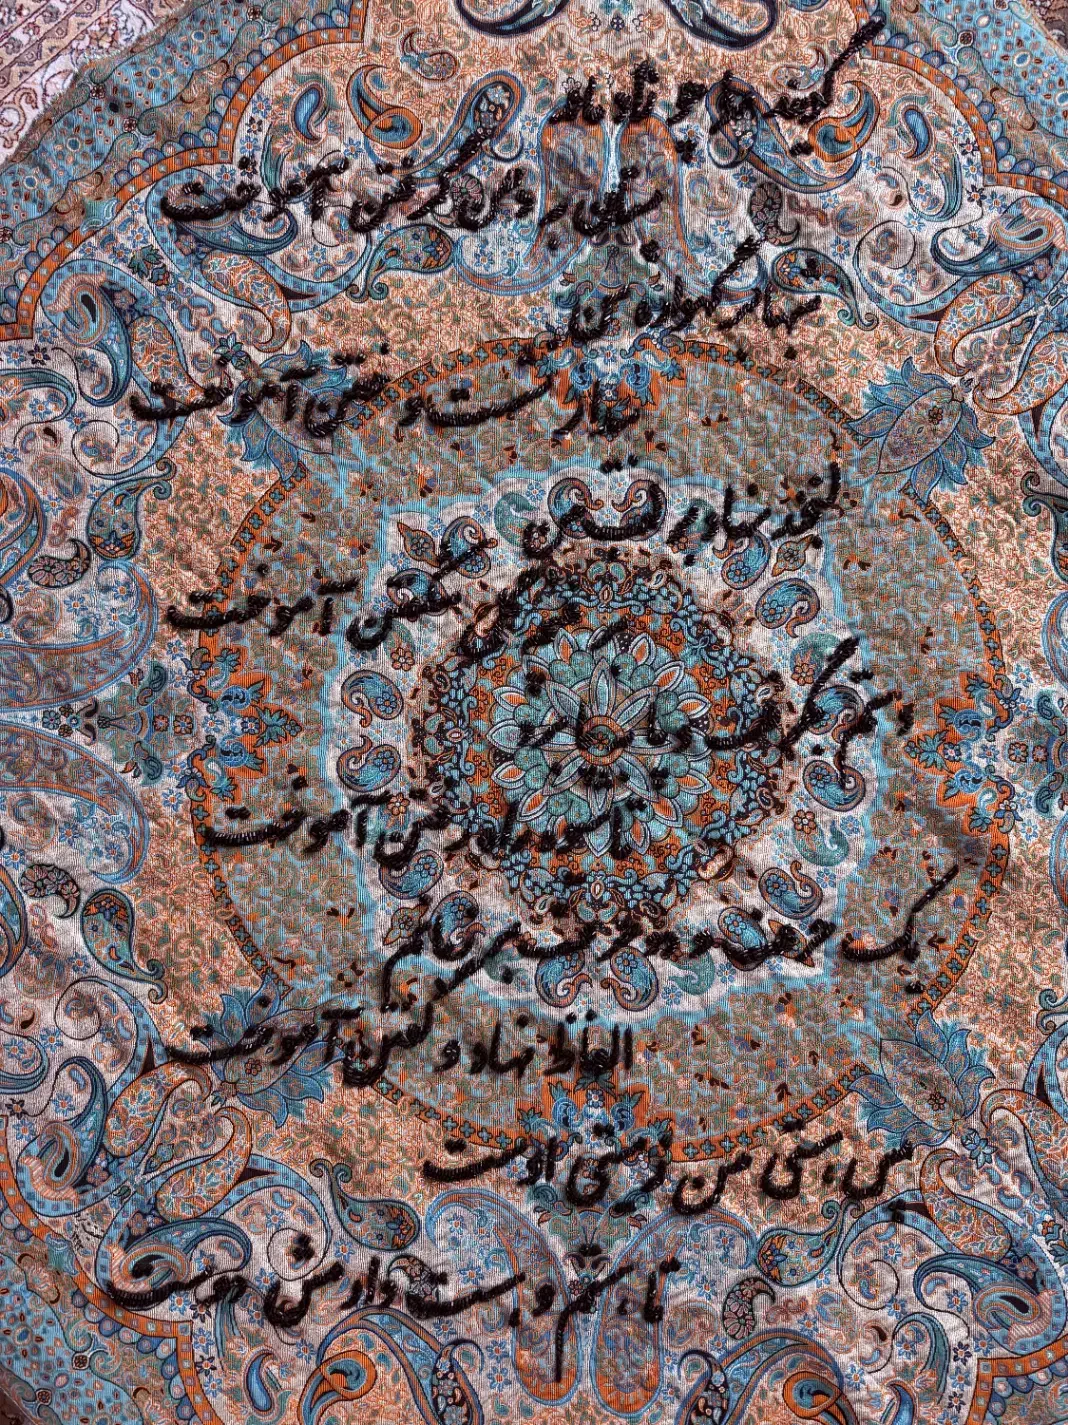 گویند مرا چو زاد مادر
پستان به دهن گرفتن آموخت
شبها بر گهواره من
بیدار نشست و خفتن آموخت
لبخند نهاد بر لب من
بر غنچه گل شکفتن آموخت
دستم بگرفت و پا به پا برد
تا شیوه راه رفتن آموخت
یک حرف و دو حرف بر زبانم
الفاظ نهاد و گفتن آموخت
پس هستی من ز هستی اوست
تا هستم و هست دارمش دوست